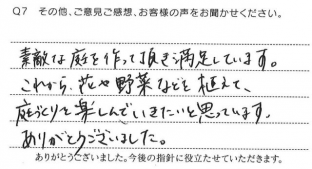 Q7 その他、ご意見ご感想、お客様の声をお聞かせください。
素敵な庭を作って頂き満足しています。
これから、花や野菜などを植えて、
庭づくりを楽しんでいきたいと思っています。
ありがとうございました。
ありがとうございました。今後の指針に役立たせていただきます。